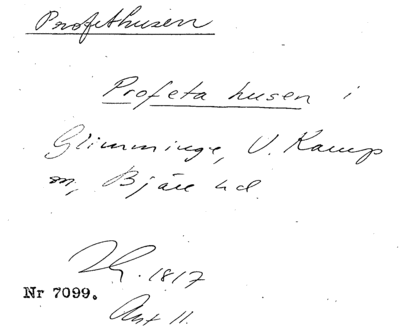 Profethusen
Profeta husen i
Glimminge, V. Karup
sn, Bjäre hd.
1817
Nr 7099.
Ant 11.